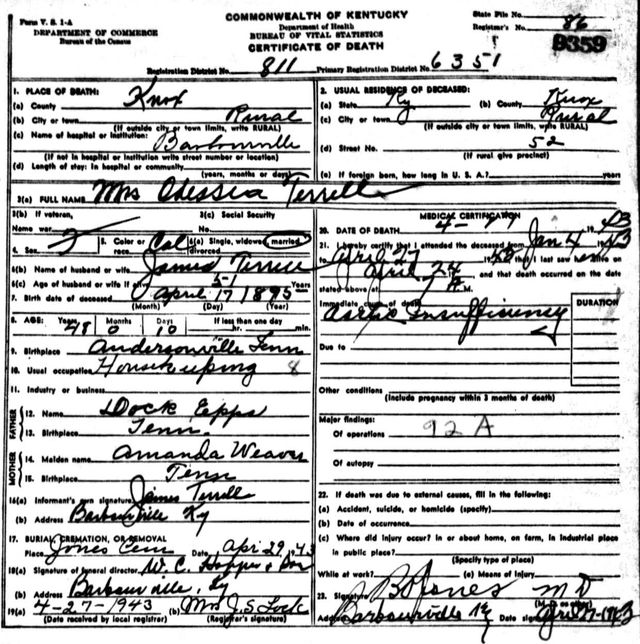 Form V. S. 1-A
DEPARTMENT OF COMMERCE
Bureau of the Census
COMMONWEALTH OF KENTUCKY
Department of Health
BUREAU OF VITAL STATISTICS
CERTIFICATE OF DEATH
State File No.
Registrar's No. 86
9359
Registration District No. 811 Primary Registration District No. 6351
1. PLACE OF DEATH:
(a) County Knox
(b) City or town Rural
(If outside city or town limits, write RURAL)
(c) Name of hospital or institution: Barbourville
(If not in hospital or institution write street number or location)
(d) Length of stay: In hospital or community
(years, months or days)
2. USUAL RESIDENCE OF DECEASED:
(a) State Ky (b) County Knox
(c) City or town Rural
(If outside city or town limits, write RURAL)
(d) Street No. 52
(If rural give precinct)
(e) If foreign born, how long in U. S. A.? years
3(a) FULL NAME Mrs Odessia Terrell
3(b) If veteran, 3(c) Social Security
Name war No.
4. Sex F 5. Color or race Col 6(a) Single, widowed, married, divorced
6(b) Name of husband or wife James Terrell
6(c) Age of husband or wife if alive 51 Years
7. Birth date of deceased April 17 1895
(Month) (Day) (Year)
8. AGE: Years Months Days If less than one day
48 0 10 hr. min.
9. Birthplace Andersonville Tenn
10. Usual occupation Housekeeping 8
11. Industry or business
FATHER
12. Name Dock Epps
13. Birthplace Tenn.
MOTHER
14. Maiden name Amanda Weaver
15. Birthplace Tenn
16(a) Informant's own signature James Terrell
(b) Address Barbourville Ky
17. BURIAL, CREMATION, OR REMOVAL
Place Jones Cem Date Apr 29, 1943
18(a) Signature of funeral director W. C. Hopper & Son
(b) Address Barbourville, Ky
19(a) 4-27-1943 (b) Mrs J. S. Lock
(Date received by local registrar) (Registrar's signature)
MEDICAL CERTIFICATION
20. DATE OF DEATH 4- 1943
21. I hereby certify that I attended the deceased from Jan 4 1943
to April 27 19 that I last saw alive on
April 24 and that death occurred on the date
stated above at M.
Immediate cause of death DURATION
Aortic Insufficiency
Due to
Other conditions
(Include pregnancy within 3 months of death)
Major findings:
Of operations 92 A
Of autopsy
22. If death was due to external causes, fill in the following:
(a) Accident, suicide, or homicide (specify)
(b) Date of occurrence
(c) Where did injury occur? In or about home, on farm, in industrial place
in public place?
(Specify type of place)
While at work? (e) Means of Injury
23. Signature B Jones M D
Barbourville Ky Date signed 1943